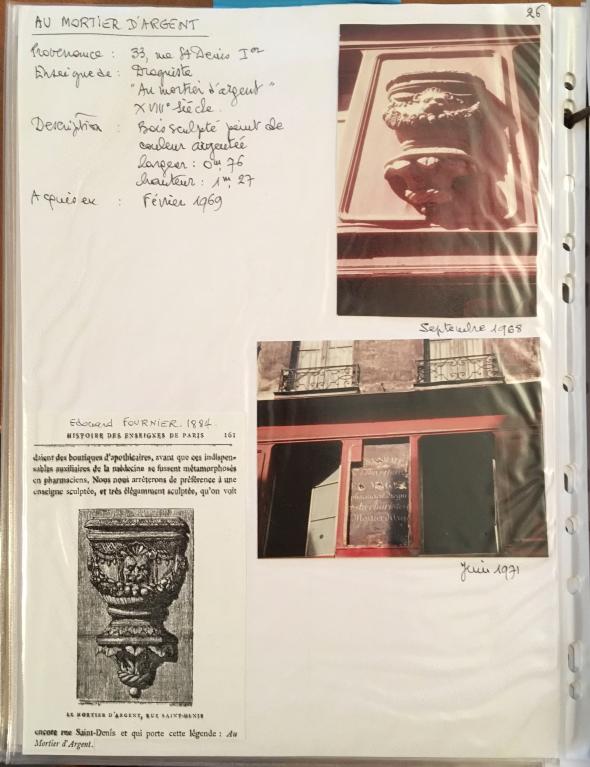 AU MORTIER D'ARGENT
26
Provenance : 33, rue St Denis Ier
Enseigne de : Droguiste
"Au mortier d'argent"
XVIII° siècle.
Description : Bois sculpté peint de
couleur argentée
largeur : 0m,76
hauteur : 1m,27
Acquis en : Février 1969
Septembre 1968
Juin 1971
Edouard FOURNIER. 1884.
HISTOIRE DES ENSEIGNES DE PARIS 161
daient des boutiques d'apothicaires, avant que ces indispen-
sables auxiliaires de la médecine se fussent métamorphosés
en pharmaciens. Nous nous arrêterons de préférence à une
enseigne sculptée, et très élégamment sculptée, qu'on voit
LE MORTIER D'ARGENT, RUE SAINT-DENIS
encore rue Saint-Denis et qui porte cette légende : Au
Mortier d'Argent.